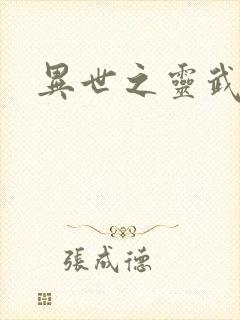 異世之靈武
張成德